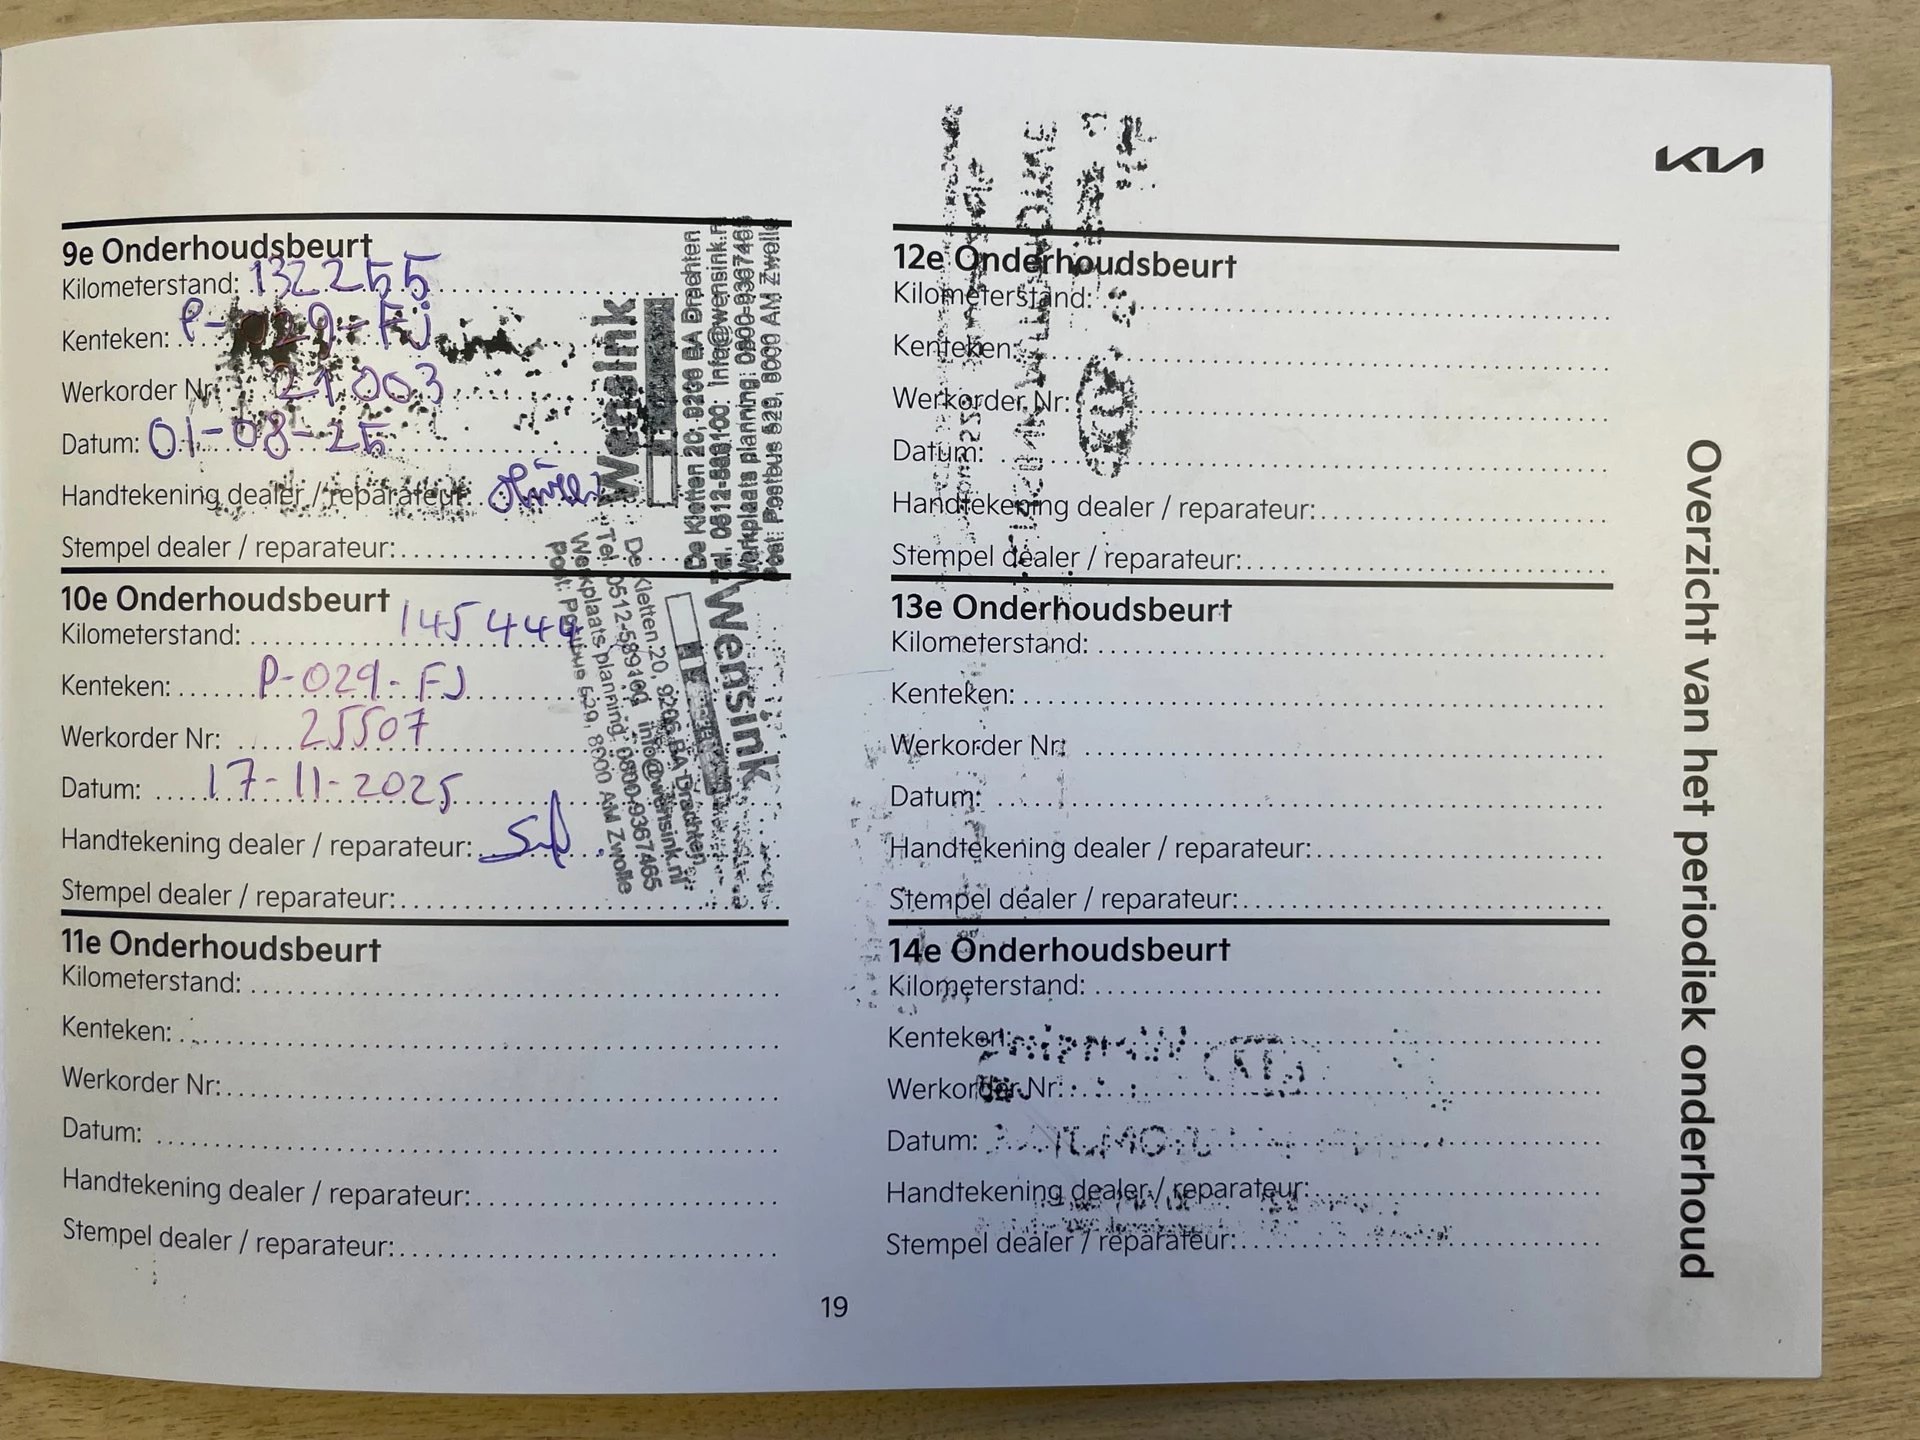 KIA
9e Onderhoudsbeurt
Kilometerstand: 132255
Kenteken: P-029-FJ
Werkorder Nr: 21003
Datum: 01-08-25
Handtekening dealer / reparateur:
Stempel dealer / reparateur:
Wensink
De Kletten 20, 9206 BA Drachten
Tel. 0512-589100 info@wensink.nl
Werkplaats planning: 0800-9367465
Post: Postbus 529, 8000 AM Zwolle
10e Onderhoudsbeurt
Kilometerstand: 145444
Kenteken: P-029-FJ
Werkorder Nr: 25507
Datum: 17-11-2025
Handtekening dealer / reparateur:
Stempel dealer / reparateur:
Wensink
De Kletten 20, 9206 BA Drachten
Tel. 0512-589100 info@wensink.nl
Werkplaats planning: 0800-9367465
Post: Postbus 529, 8000 AM Zwolle
11e Onderhoudsbeurt
Kilometerstand:
Kenteken:
Werkorder Nr:
Datum:
Handtekening dealer / reparateur:
Stempel dealer / reparateur:
12e Onderhoudsbeurt
Kilometerstand:
Kenteken:
Werkorder Nr:
Datum:
Handtekening dealer / reparateur:
Stempel dealer / reparateur:
13e Onderhoudsbeurt
Kilometerstand:
Kenteken:
Werkorder Nr:
Datum:
Handtekening dealer / reparateur:
Stempel dealer / reparateur:
14e Onderhoudsbeurt
Kilometerstand:
Kenteken:
Werkorder Nr:
Datum:
Handtekening dealer / reparateur:
Stempel dealer / reparateur:
Overzicht van het periodiek onderhoud
19